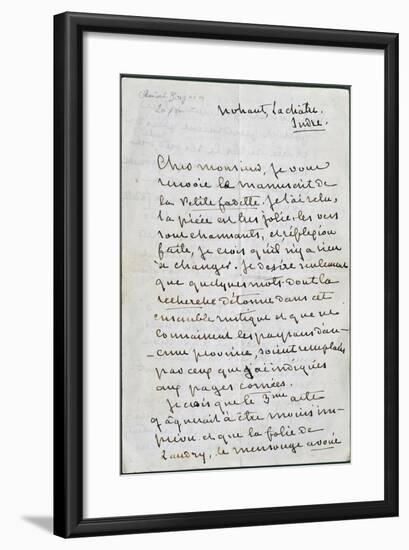 Nohant, La châtre.
Indre.
Cher monsieur, je vous
renvoie le manuscrit de
la Petite fadette. Je l'ai relu,
la pièce est très jolie, les vers
sont charmants, et réflexion
faite, je crois qu'il n'y a rien
à changer. Je desire seulement
que quelques mots dont la
recherche détonne dans cet
ensemble rustique et que ne
connaissent les paysans d'au-
-cune province, soient remplacés
par ceux que j'ai indiqués
aux pages cornées.
Je crois que le 3me acte
gagnerait à être moins im-
prévu et que la folie de
Landry, le mensonge avoué